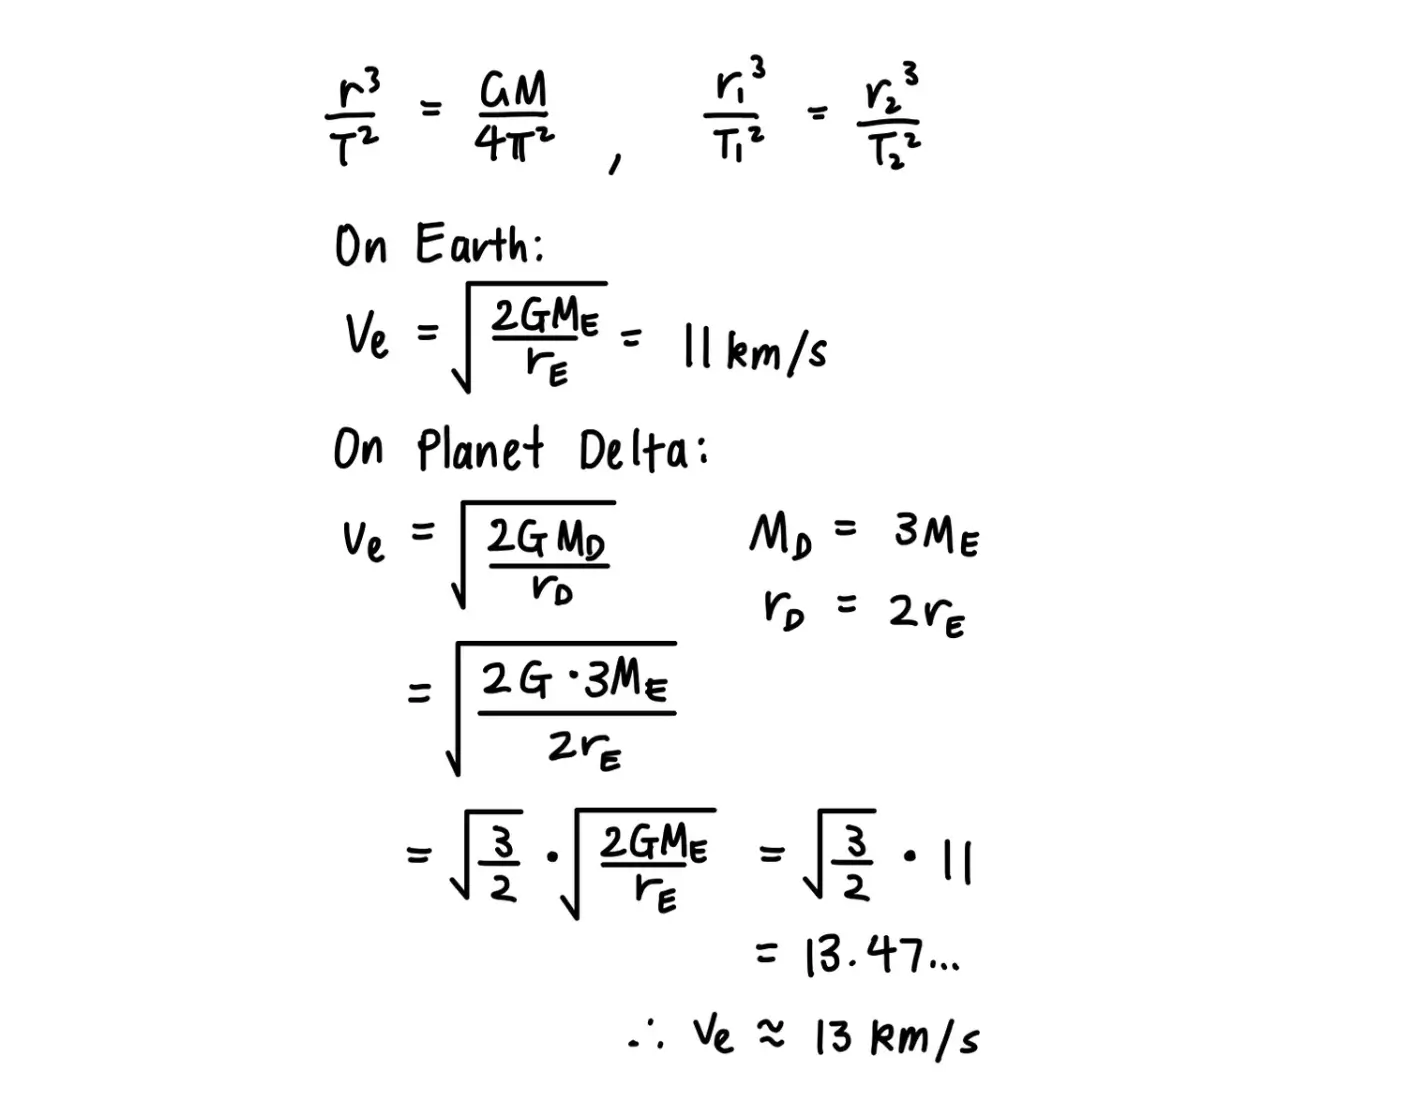 r³/T² = GM/4π² , r₁³/T₁² = r₂³/T₂²
On Earth:
Ve = √(2GM_E/r_E) = 11 km/s
On Planet Delta:
Ve = √(2GM_D/r_D) M_D = 3M_E
r_D = 2r_E
= √(2G·3M_E/2r_E)
= √(3/2) · √(2GM_E/r_E) = √(3/2) · 11
= 13.47...
∴ Ve ≈ 13 km/s